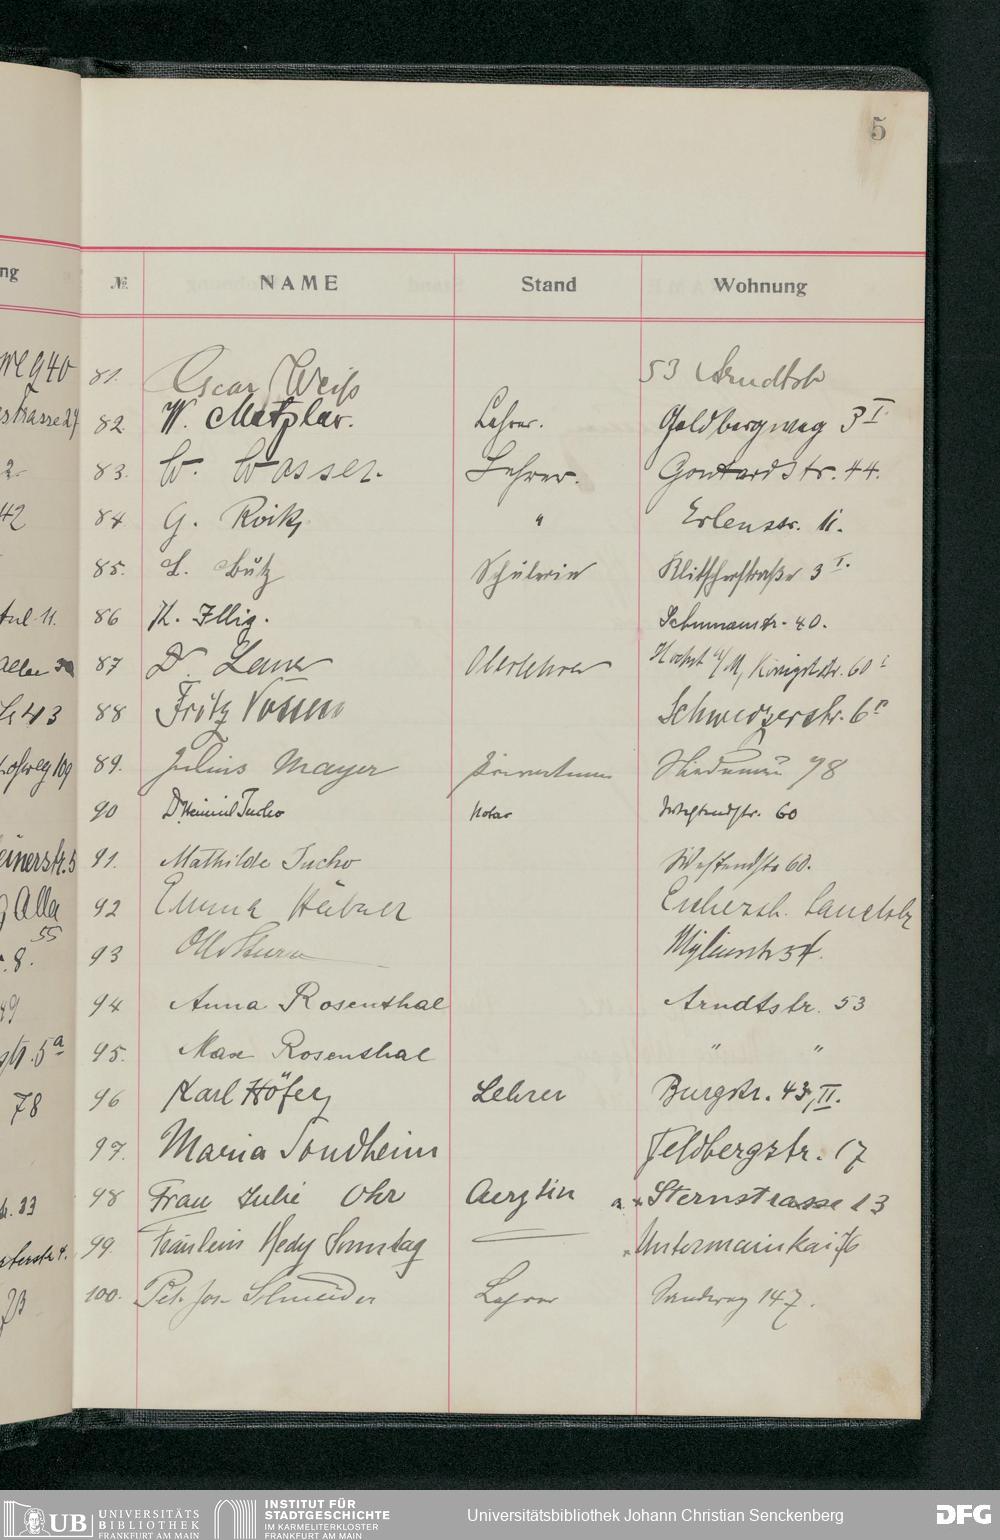 5
ng
№ NAME Stand Wohnung
weg 40
81. Oscar Weiß 53 Arndtstr
strasse 27
82 W. Metzler. Lehrer. Goldbergweg 3 I.
2
83. W. Wasser. Lehrer. Gontardstr. 44.
42
84 G. " Erlenstr. 11.
85. L. Butz Schülerin Klitscherstraße 3 I.
11.
86 K. Illig. Schumannstr. 40.
allee
87 Dr. Oberlehrer Höchst a/M, Königst. str. 60 I
43
88 Fritz Vossen Schweizerstr. 6
hofweg 109
89. Julius Mayer 98
90 Dr. Heinrich Tucho Notar Westendstr. 60
einerstr. 5
91. Mathilde Tucho Westendstr 60.
Alla
92 Emma Hübner Eschersh. Landstr
55
8.
93 Otto Sturm Myliusstr 54.
89
94 Anna Rosenthal Arndtstr. 53
str. 5a
95. Max Rosenthal " "
78
96 Karl Höfer Lehrer Burgstr. 43, II.
97. Maria Sondheim Feldbergstr. 17
33
98 Frau Julie Ohr Aerztin Sternstrasse 13
4.
99. Fräulein Hedy Sonntag Untermainkai 76
100. Pet. Jos. Schneider Lehrer Sandweg 147.
UB UNIVERSITÄTS
BIBLIOTHEK
FRANKFURT AM MAIN
INSTITUT FÜR
STADTGESCHICHTE
IM KARMELITERKLOSTER
FRANKFURT AM MAIN
Universitätsbibliothek Johann Christian Senckenberg
DFG